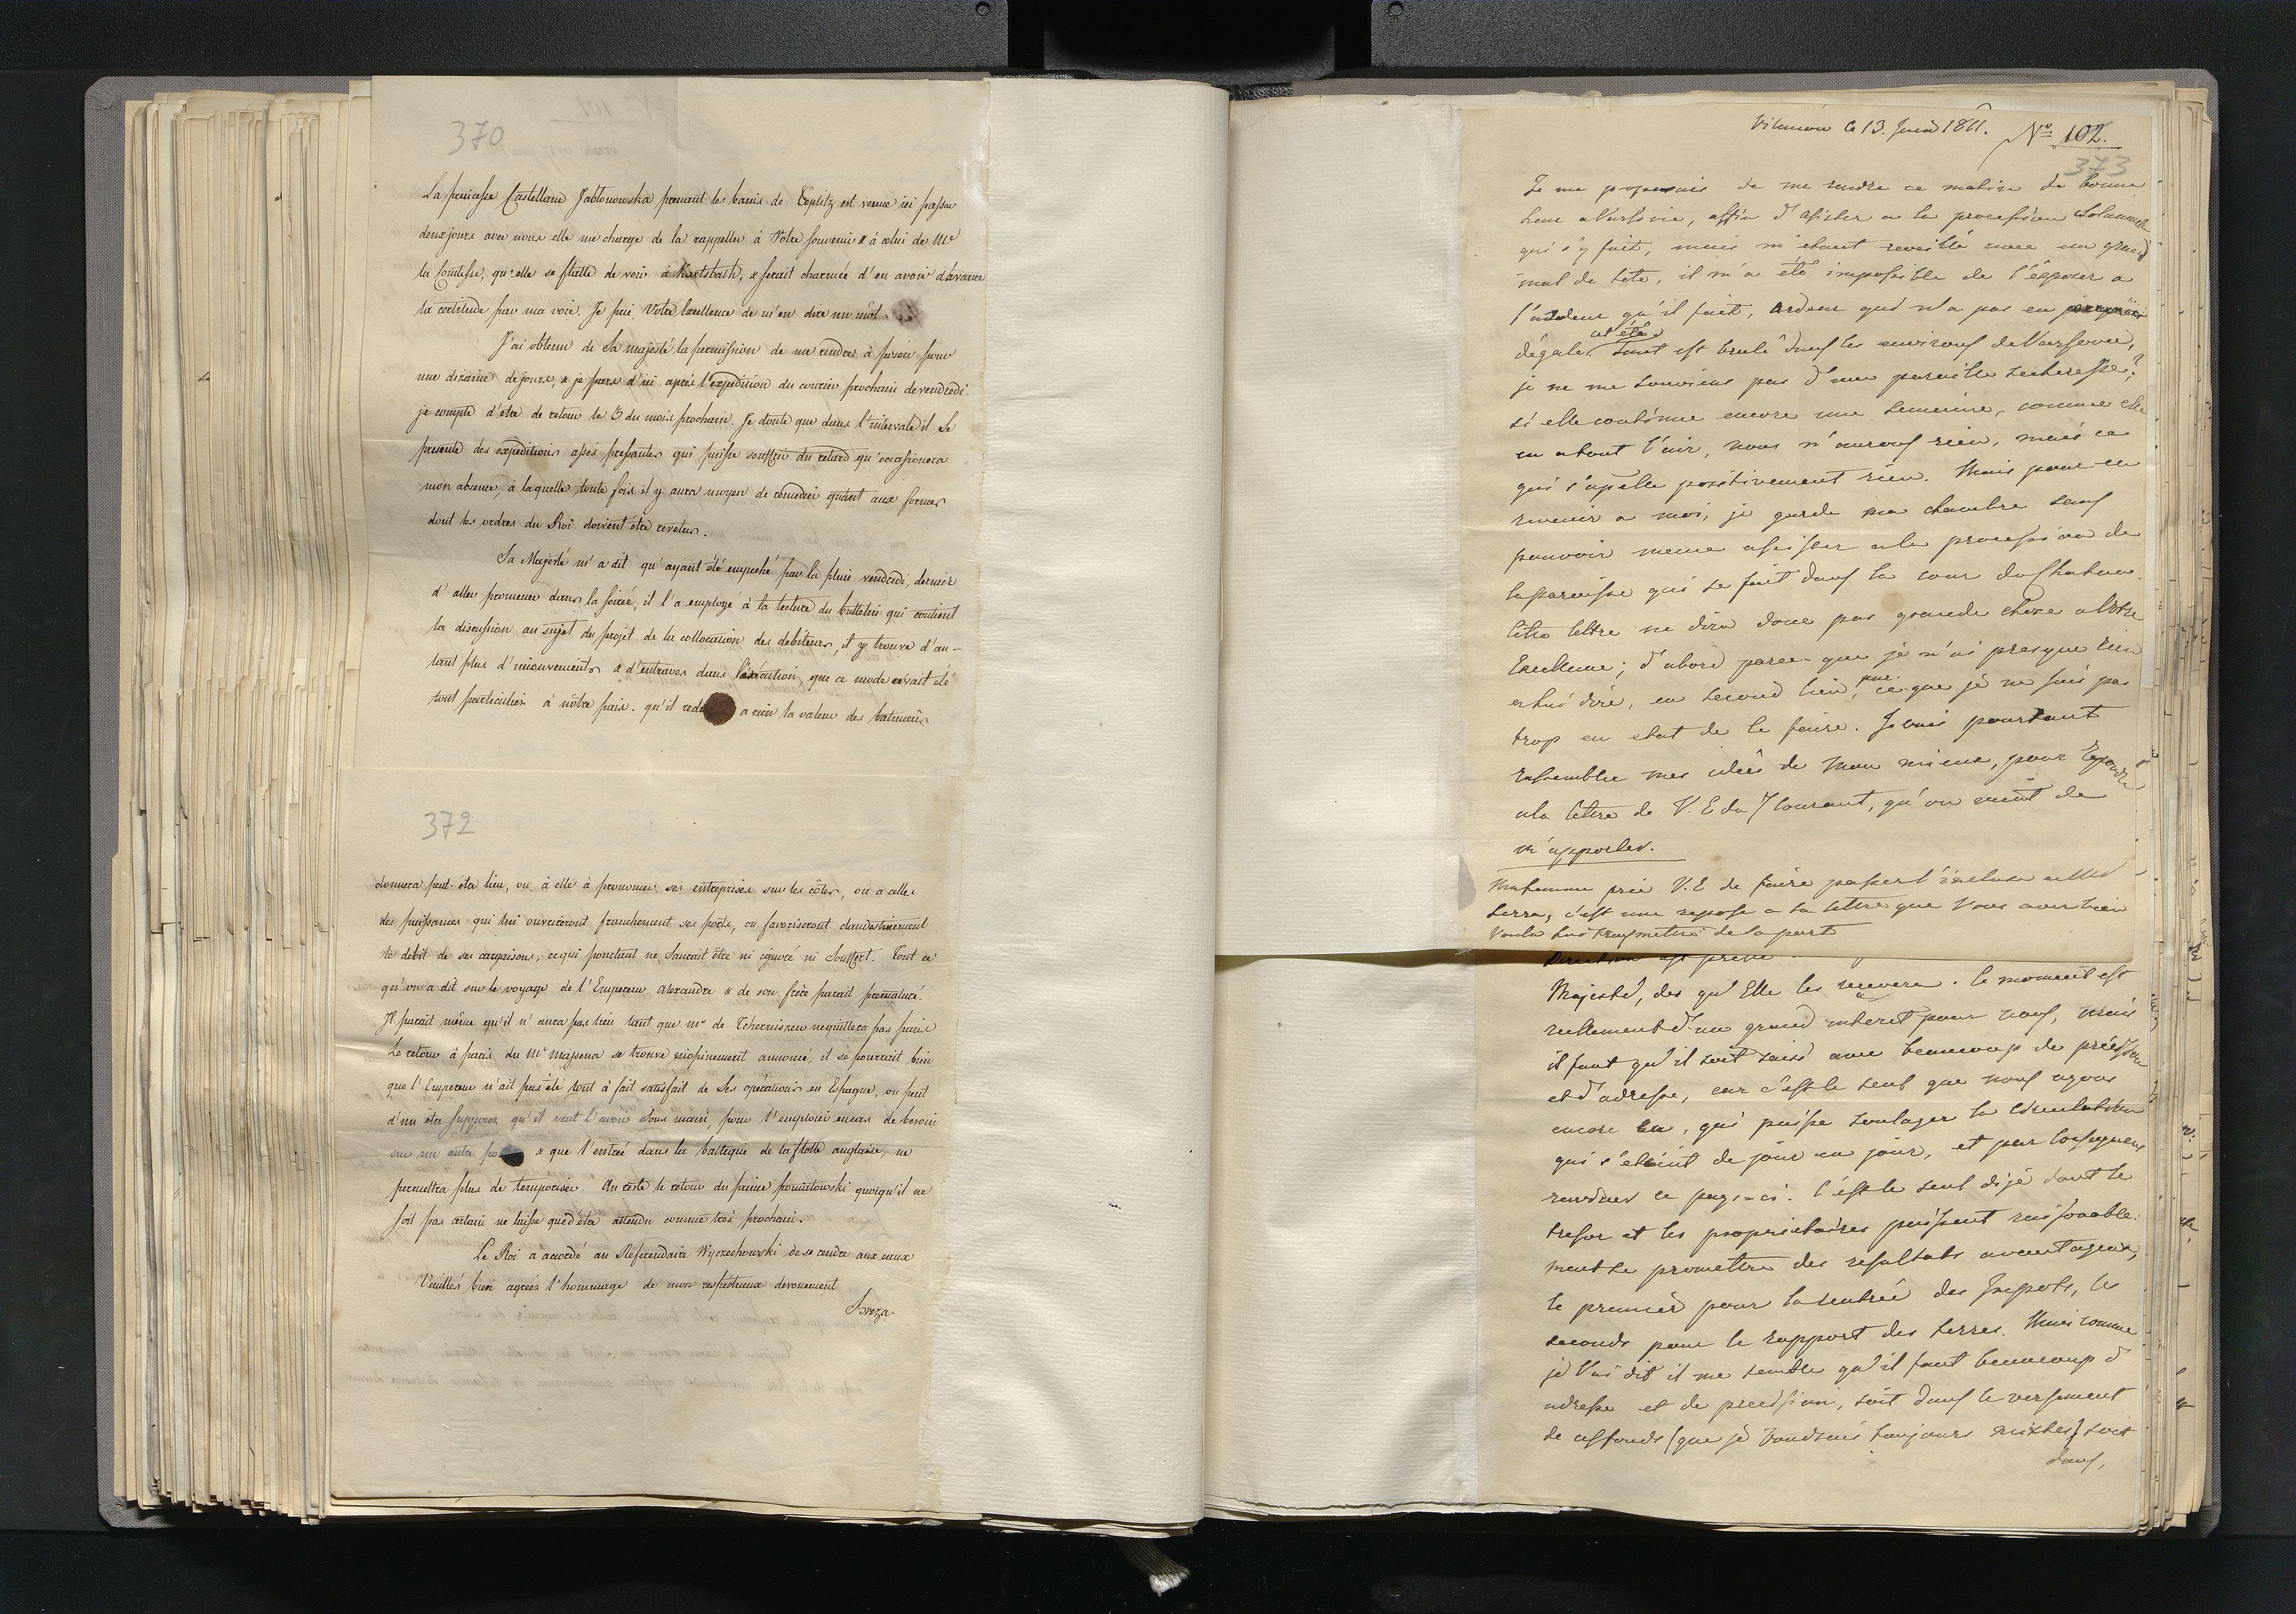 370
La princesse Castellane Jablonowska prenant les bains de Toeplitz est venue ici passer
deux jours avec nous elle me charge de la rappeller à Votre souvenir & à celui de Me
la Comtesse, qu'elle se flatte de voir à , & serait charmée d'en avoir d'avance
la certitude par ma voie. Je prie Votre Excellence de m'en dire un môt.
J'ai obtenu de Sa majesté la permission de me rendre à posen pour
une dixaine de jours, & je pars d'ici après l'expedition du courier prochain de vendredi.
je compte d'être de retour le 3 du mois prochain. Je doute que dans l'intervale il se
presente des expeditions assés pressantes qui puisse souffrir du retard qu'occasionera
mon absence, à laquelle toute fois il y aura moyen de remedier quant aux formes
dont les ordres du Roi doivent être revetus.
Sa Majesté m'a dit qu'ayant été empeché par la pluie vendredi dernier
d'aller promener dans la soirée, il l'a employé à la lecture du bulletin qui contient
la discussion au sujet du projet de la collocation des debiteurs, il y trouve d'au-
tant plus d'inconvenients & d'entraves dans l'exécution, que ce mode serait été
tout particulier à nôtre païs. qu'il a rien la valeur des batimens
372
donnera peut-être lieu, ou à elle à promener ses entreprises sur les côtes, ou a celles
des puissances qui lui ouvriront franchement ses ports, ou favoriseront clandestinement
le debit de ses cargaisons, ce qui pourtant ne saurait être ni ignoré ni souffert. Tout ce
qu'on a dit sur le voyage de l'Empereur Alexandre & de son frère parait prematuré.
Il parait même qu'il n'aura pas lieu tant que mr de Tchernischew ne quittera pas paris
Le retour à paris du Ml Massena se trouve inopinement annoncé, il se pourrait bien
que l'Empereur n'ait pas été tout à fait satisfait de ses opérations en Espagne, on peut
d'un être supposer qu'il veut l'avoir sous main, pour l'emploier en cas de besoin
sur un autre & que l'entrée dans la baltique de la flotte anglaise, ne
permettra plus de temporiser. Au reste le retour du prince poniatowski quoiqu'il ne
soit pas certain ne laisse que d'être attendu comme très prochain.
Le Roi a accordé au Réferendaire Wyczechowski de se rendre aux eaux
Veuillés bien agréer l'hommage de mon respectueux devouement
Breza
Vilanów le 13. Juin 1811.
Nro 102.
373
Je me proposais de me rendre ce matin de bonne
heur a Varsovie, affin d'assister a la procession solemnelle
qui s'y fait, mais m'etant reveillé avec un grand
mal de tete, il m'a été impossible de l'exposer a
l'ardeur qu'il fait, ardeur qui n'a pas eu
d'égale cet été. Tout est brulé dans les environs de Varsovie,
je ne me souviens pas d'une pareille secheresse;
si elle continue encore une semaine, comme elle
en a tout l'air, nous n'aurons rien, mais ce
qui s'apelle positivement rien. Mais pour en
revenir a moi, je garde ma chambre sans
pouvoir meme assister a la procession de
la paroisse qui se fait dans la cour du Chateau.
Cette lettre ne dira donc pas grande chose a Votre
Excellence; d'abord parce que je n'ai presque rien
a lui dire, en second lieu, parce que je ne suis pas
trop en etat de le faire. Je vais pourtant
rassembler mes idées de mon mieux, pour repondre
a la lettre de V. E du 7 courant, qu'on vient de
m'apporter.
Ma femme prie V. E de faire passer l'incluse a Md
Serra, c'est une reponse a la lettre que Vous avez bien
voulu lui transmettre de sa part
Majesté, des qu'Elle les recevera. le moment est
reellement d'un grand interet pour nous, mais
il faut qu'il soit saisi avec beaucoup de précision
et d'adresse, car c'est le seul que nous ayons
encore eu, qui puisse soulager la circulation
qui s'eteint de jour en jour, et par consequent
ranimer ce pays-ci. C'est le seul dont le
tresor et les proprietaires puissent raisonable-
ment se promettre des resultats avantageux,
le premier pour la rentrée des Impots, les
seconds pour le rapport des terres. Mais comme
je l'ai dit il me semble qu'il faut beaucoup d'
adresse et de precision, soit dans le versement
de ces fonds (que je voudrais toujours mixtes) soit
dans,